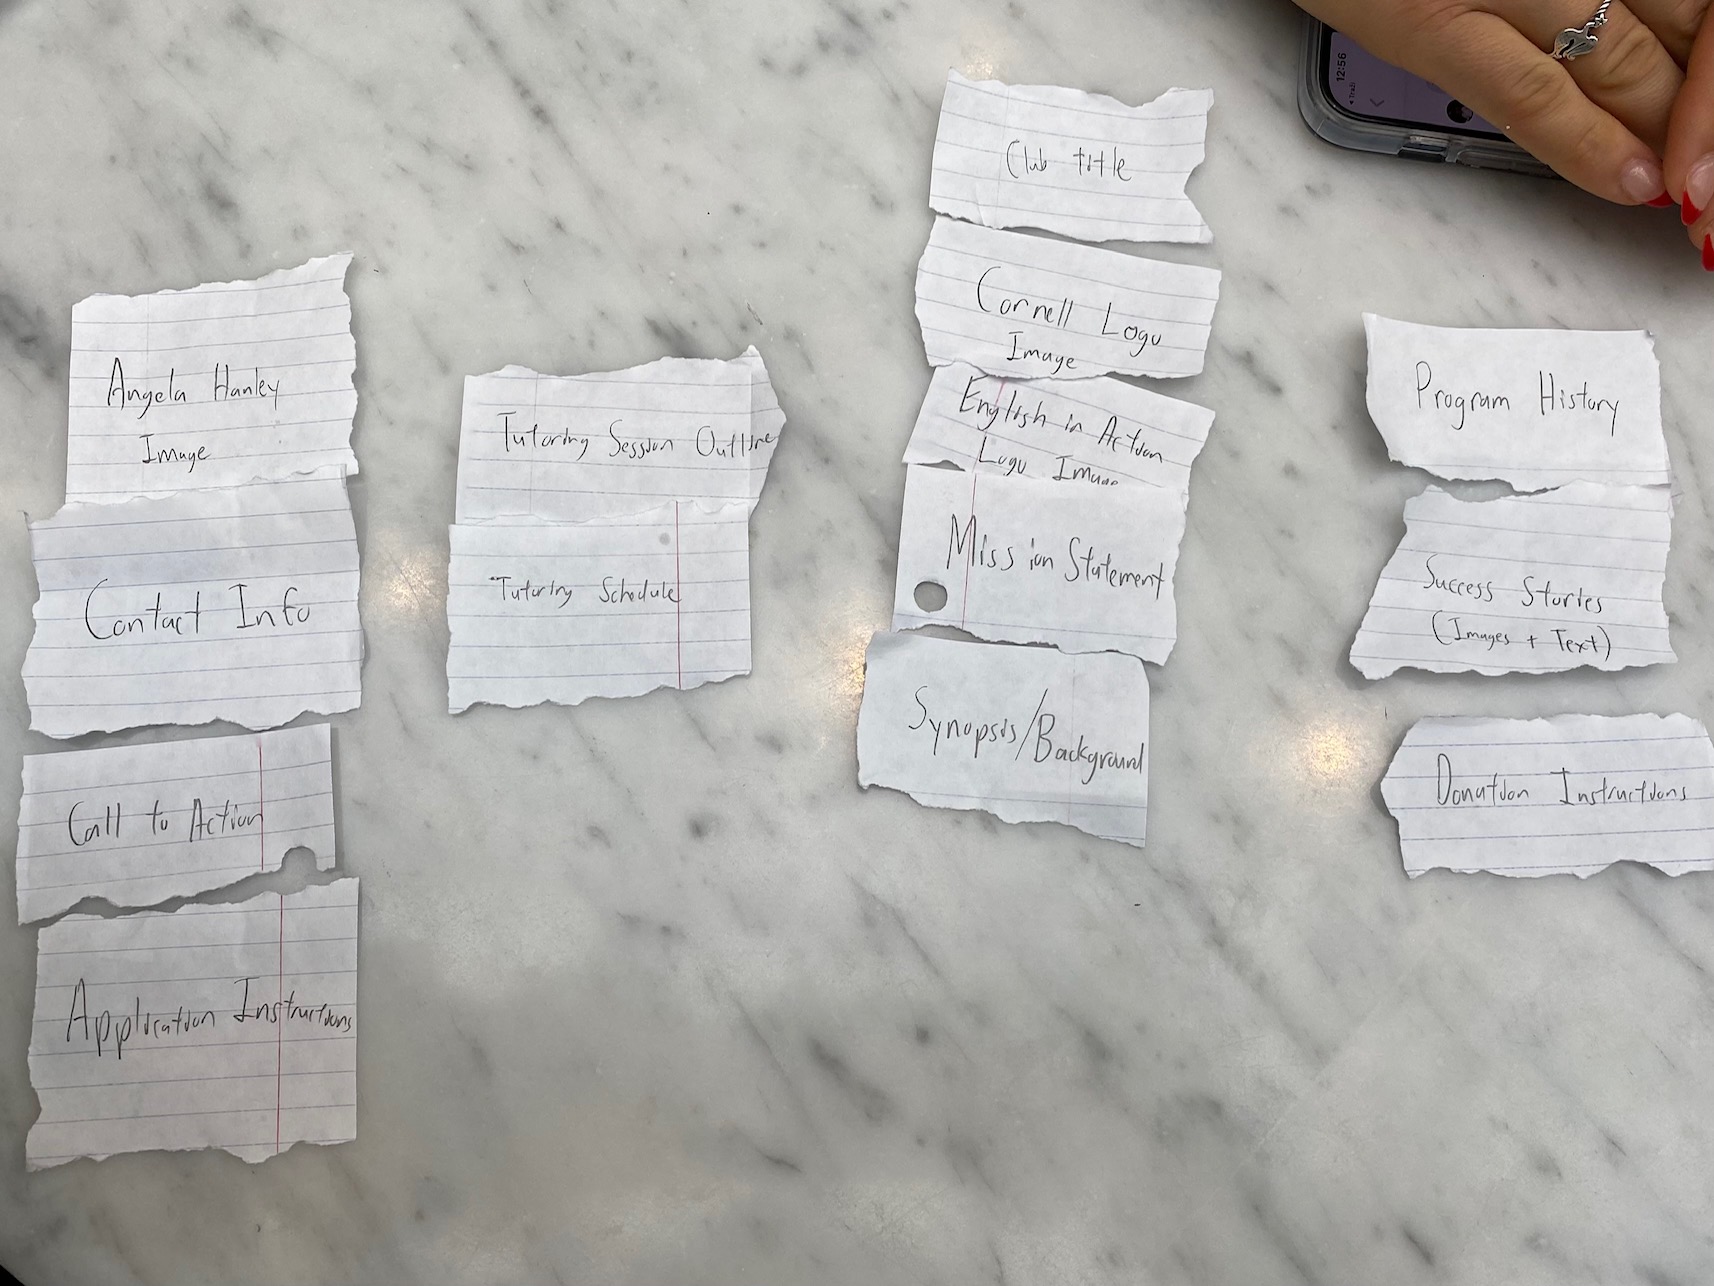 Angela Hanley
Image
Contact Info
Call to Action
Application Instructions
Tutoring Session Outline
Tutoring Schedule
Club title
Cornell Logo
Image
English in Action
Logo Image
Mission Statement
Synopsis/Background
Program History
Success Stories
(Images + Text)
Donation Instructions
12:56